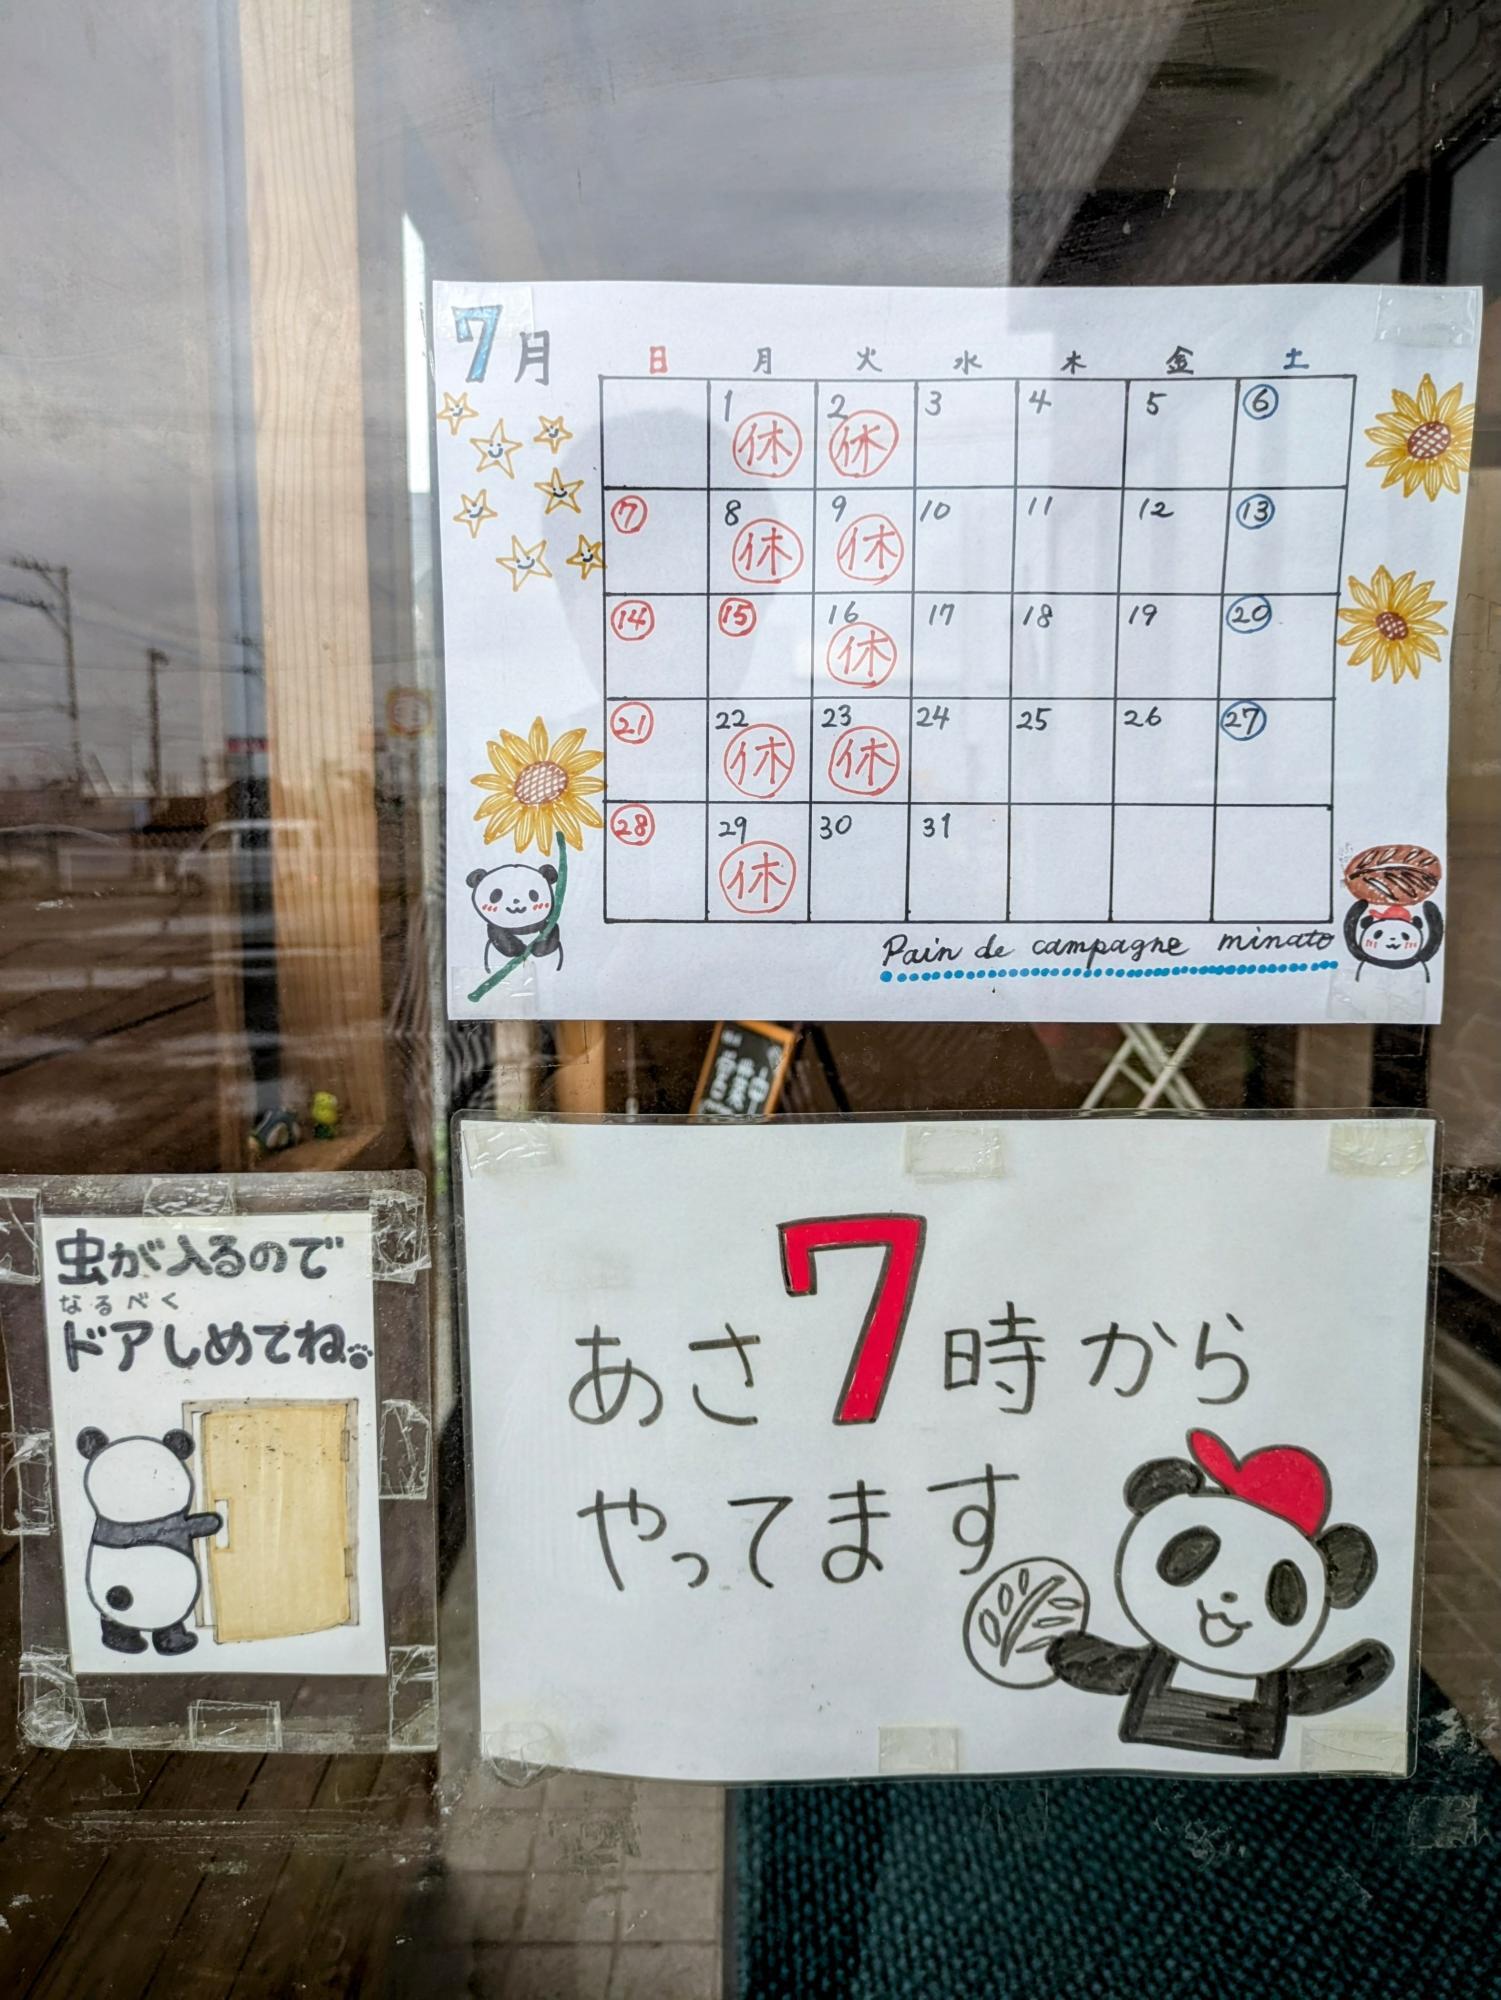 7月
日 月 火 水 木 金 土
1 2 3 4 5 6
休 休
7 8 9 10 11 12 13
休 休
14 15 16 17 18 19 20
休
21 22 23 24 25 26 27
休 休
28 29 30 31
休
Pain de campagne minato
虫が入るので
なるべく
ドアしめてね
あさ7時から
やってます